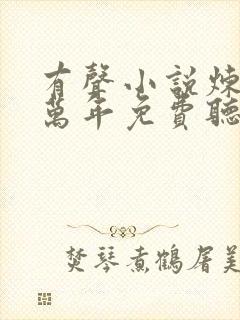 有聲小說煉
萬年免費聽
焚琴煮鶴屠美